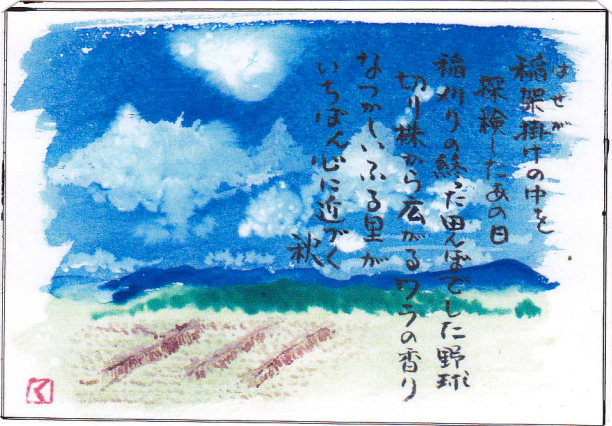 はせが
稲架掛けの中を
探検したあの日
稲刈りの終った田んぼでした野球
切り株から広がるワラの香り
なつかしいふる里が
いちばん心に近づく
秋
く